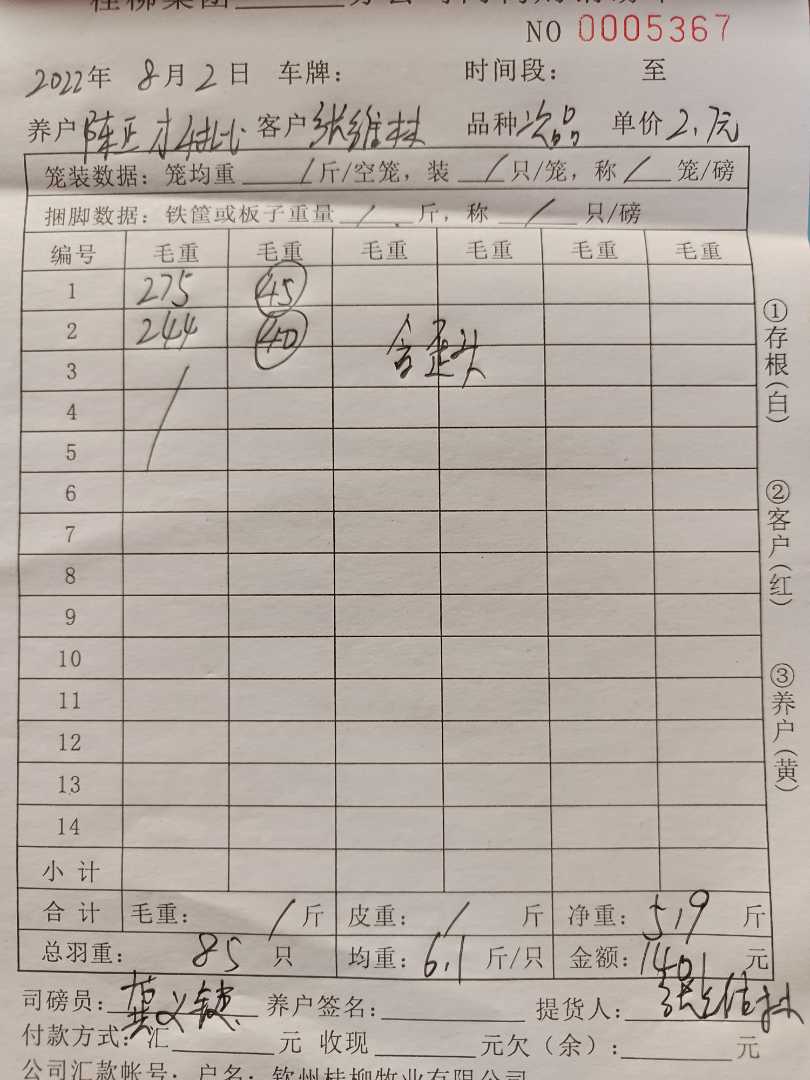 桂柳集团
NO 0005367
2022年 8月2日 车牌: 时间段: 至
养户 陈正才 客户 张维林 品种 次品 单价 2.7元
笼装数据: 笼均重 / 斤/空笼, 装 / 只/笼, 称 / 笼/磅
捆脚数据: 铁筐或板子重量 / 斤, 称 / 只/磅
编号 毛重 毛重 毛重 毛重 毛重 毛重
1 275 45
2 244 40
3 含歪头
4
5
6
7
8
9
10
11
12
13
14
小计
合计 毛重: / 斤 皮重: / 斤 净重: 519 斤
总羽重: 85 只 均重: 6.1 斤/只 金额: 1401 元
司磅员: 养户签名: 提货人: 张维林
付款方式: 汇 元 收现 元欠(余): 元
公司汇款帐号: 户名: 钦州桂柳牧业有限公司
①存根(白)
②客户(红)
③养户(黄)